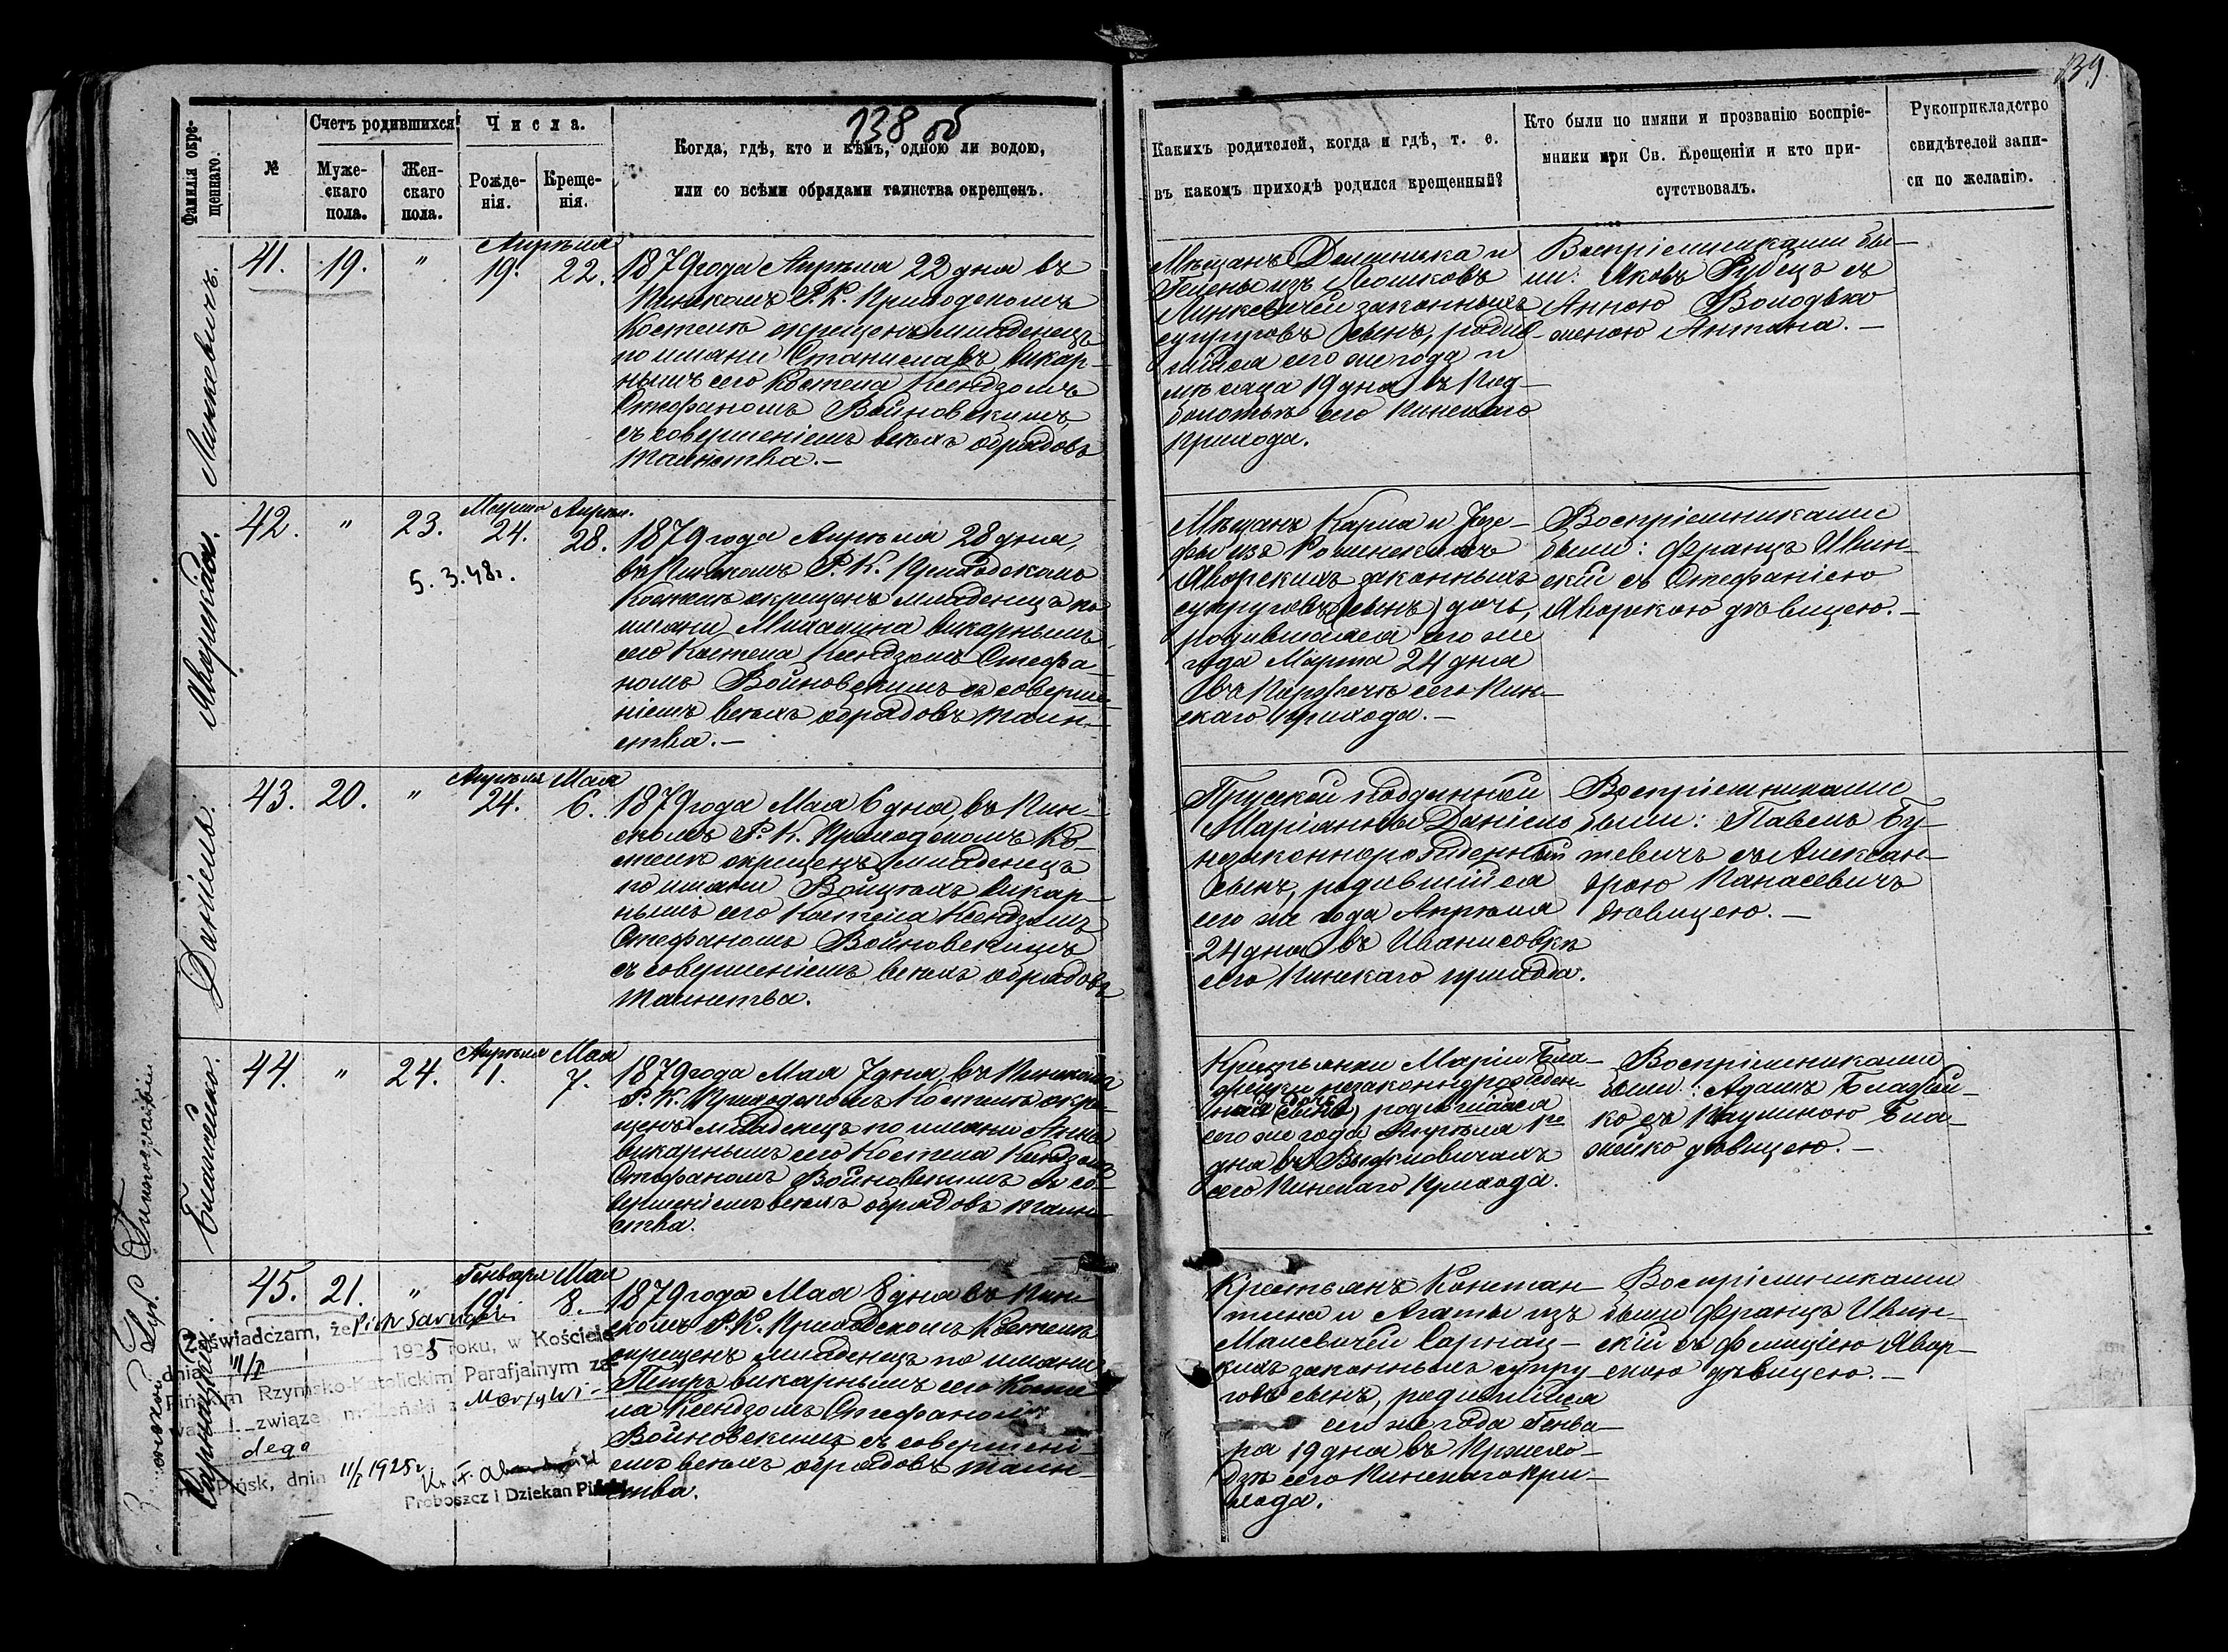 139.
138 об
Фамилія окре-
щеннаго.
№
Счетъ родившихся
Муже-
скаго
пола.
Жен-
скаго
пола.
Числа.
Рожде-
нія.
Креще-
нія.
Когда, гдѣ, кто и кѣмъ, одною ли водою,
или со всѣми обрядами таинства окрещенъ.
Какихъ родителей, когда и гдѣ, т. е.
въ какомъ приходѣ родился крещенный?
Кто были по имяни и прозванію воспріе-
мники при Св. Крещеніи и кто при-
сутствовалъ.
Рукоприкладство
свидѣтелей запи-
си по желанію.
Линкевичъ.
41. 19. " Апрѣля
19. 22.
1879 года Апрѣля 22 дня въ
Пинскомъ Р. К. Приходскомъ
Костелѣ окрещенъ младенецъ
по имяни Станиславъ викар-
нымъ сего Костела Ксендзомъ
Стефаномъ Войновскимъ,
съ совершеніемъ всѣхъ обрядовъ
таинства.–
Мѣщанъ Доминика и
Елены изъ
Линкевичей законныхъ
супруговъ сынъ, родив-
шійся сего же года и
мѣсяца 19 дня въ Под-
болотьѣ сего Пинскаго
прихода.
Воспріемниками бы-
ли: Яковъ Рубецъ съ
Анною Володько
женою Антона.–
Яворская.
42. " 23. Марта Апрѣл.
24. 28.
5.3.48г.
1879 года Апрѣля 28 дня,
въ Пинскомъ Р. К. Приходскомъ
Костелѣ окрещенъ младенецъ по
имяни Михалина викарнымъ
сего Костела Ксендзомъ Стефа-
номъ Войновскимъ съ соверше-
ніемъ всѣхъ обрядовъ таин-
ства.–
Мѣщанъ Карла и Юзе-
фы изъ
Яворскихъ законныхъ
супруговъ (сынъ) дочь,
родившаяся сего же
года Марта 24 дня
въ сего Пин-
скаго прихода.–
Воспріемниками
были: Францъ Ивин-
скій съ Стефаніею
Яворскою дѣвицею.–
Даніель.
43. 20. " Апрѣля Мая
24. 6.
1879 года Мая 6 дня, въ Пин-
скомъ Р. К. Приходскомъ Ко-
стелѣ окрещенъ младенецъ
по имяни Войцѣхъ викар-
нымъ сего Костела Ксендзомъ
Стефаномъ Войновскимъ
съ совершеніемъ всѣхъ обрядовъ
таинства.
Прусской подданной
Маріанны Даніель
незаконнорожденный
сынъ, родившійся
сего же года Апрѣля
24 дня въ Иванисовкѣ
сего Пинскаго прихода.
Воспріемниками
были: Павелъ Бу-
тевичъ съ Алексан-
дрою Панасевичъ
дѣвицею.–
Блажейко.
44. " 24. Апрѣля Мая
1. 7.
1879 года Мая 7 дня, въ Пинскомъ
Р. К. Приходскомъ Костелѣ окре-
щенъ младенецъ по имяни Анна
викарнымъ сего Костела Ксендзомъ
Стефаномъ Войновскимъ съ со-
вершеніемъ всѣхъ обрядовъ таин-
ства.
Крестьянки Маріи Бла-
жейки незаконнорожден-
ная (сынъ) дочь родившаяся
сего же года Апрѣля 1го
дня въ Выжловичахъ
сего Пинскаго прихода.
Воспріемниками
были: Адамъ Блажей-
ко съ Паулиною Бла-
жейко дѣвицею.–
Сарнацкій.
45. 21. " Генваря Мая
19. 8.
1879 года Мая 8 дня въ Пин-
скомъ Р. К. Приходскомъ Костелѣ
окрещенъ младенецъ по имяни
Петръ викарнымъ сего Косте-
ла Ксендзомъ Стефаномъ
Войновскимъ съ совершені-
емъ всѣхъ обрядовъ таин-
ства.
Крестьянъ Констан-
тина и Агаты изъ
Сарнац-
кихъ законныхъ супру-
говъ сынъ, родившійся
сего же года Генва-
ря 19 дня въ
сего Пинскаго При-
хода.
Воспріемниками
были Францъ Ивин-
скій съ Фелиціею Явор-
скою дѣвицею.–
Zaświadczam, że Piotr Sarnacki
dnia 11/I 1925 roku, w Kościele
Pińskim Rzymsko-Katolickim Parafjalnym za-
warł związek małżeński z
Pińsk, dnia 11/I 1925 r.
Proboszcz i Dziekan Piński